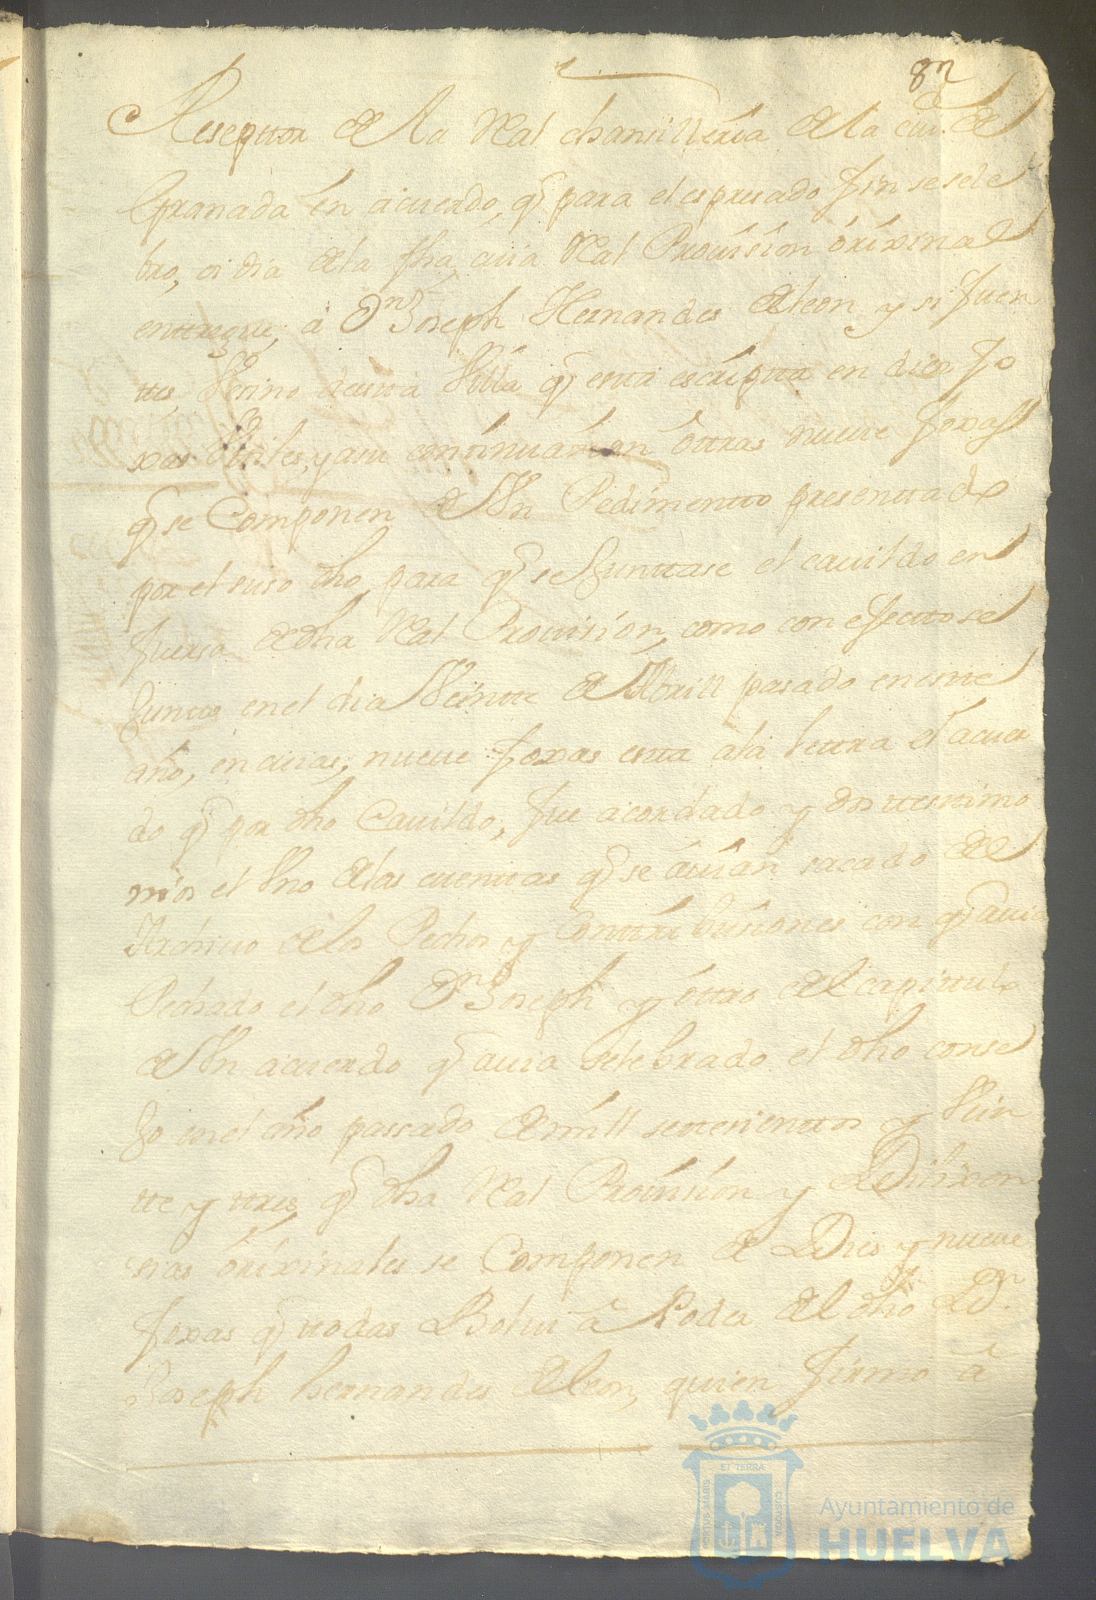 82
Reseptor de la Real chansilleria de la ciud. de
Granada en acuerdo, q para el espresado fin se sele
bro, oi dia de la fha, cuia Real Provision orixinal
entregue, a Dn Joseph Hernandes de leon y si fuen
tes, Vecino de esta Villa q esta escripta en dies fo
xas Utiles, y asu continuacion ottras nueve foxas
q se Componen de Un Pedimentto presenttado
por el suso dho, para q se Junttase el cavildo en
fuersa de dha Real Provision, como con efectto se
Juntto en el dia Veintte de Abrill pasado en estte
año, en cuias, nueve foxas esta ala lettra el acuer
do q por dho Cavildo, fue acordado y dos ttesttimo
nios el Uno de las cuenttas q se avian sacado de
Archivo de los Pechos y Conttribusiones con q avia
Pechado el dho Dn Joseph y ottro del capittulo
de Un acuerdo q avia selebrado el dho conse
Jo en el año passado de mill settesienttos y Vein
tte y ttres, q dha Real Provision y Dilixen
sias orixinales se Componen de Dies y nueve
foxas q ttodas Bolvi a Poder del dho Dn.
Joseph hernandes de leon, quien firmo a
ET TERRA
PORTUS MARIS
CUSTODIA
Ayuntamiento de
HUELVA